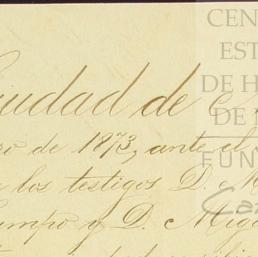 Ciudad de
ro de 1873, ante el
los testigos D. M
ampo y D. Migu
CEN
EST
DE H
DE
FUN
Ca